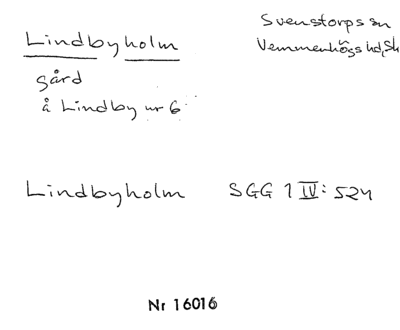 Lindbyholm
Svenstorps sn
Vemmenhögs hd, Sk
gård
å Lindby nr 6
Lindbyholm SGG 1 IV: 524
Nr 16016